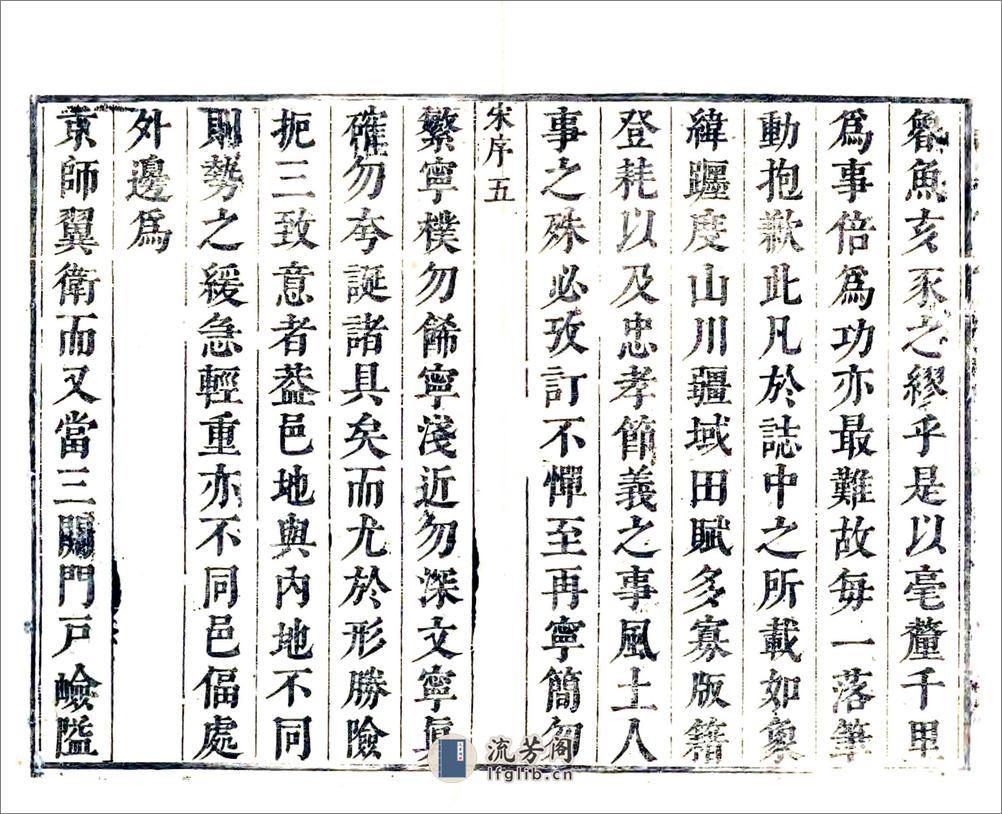 魯魚亥豕之繆乎是以毫釐千里
爲事倍爲功亦最難故每一落筆
動抱歉此凡於誌中之所載如象
緯躔度山川疆域田賦多寡版籍
登耗以及忠孝節義之事風土人
事之殊必攷訂不憚至再寧簡勿
宋序五
繁寧樸勿餙寧淺近勿深文寧眞
確勿夸誕諸具矣而尤於形勝險
扼三致意者葢邑地與內地不同
則勢之緩急輕重亦不同邑偪處
外邊爲
京師翼衛而又當三關門戸嶮隘
流芳阁
lfglib.cn